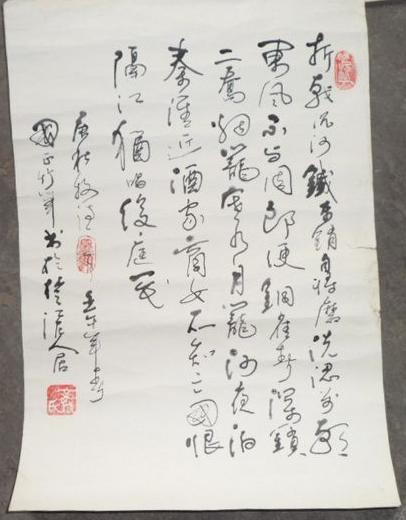 折戟沉沙鐵未銷自將磨洗認前朝
東風不與周郎便銅雀春深鎖
二喬烟籠寒水月籠沙夜泊
秦淮近酒家商女不知亡國恨
隔江猶唱後庭花
唐杜牧詩 壬午年春
國正 书於 江 人居